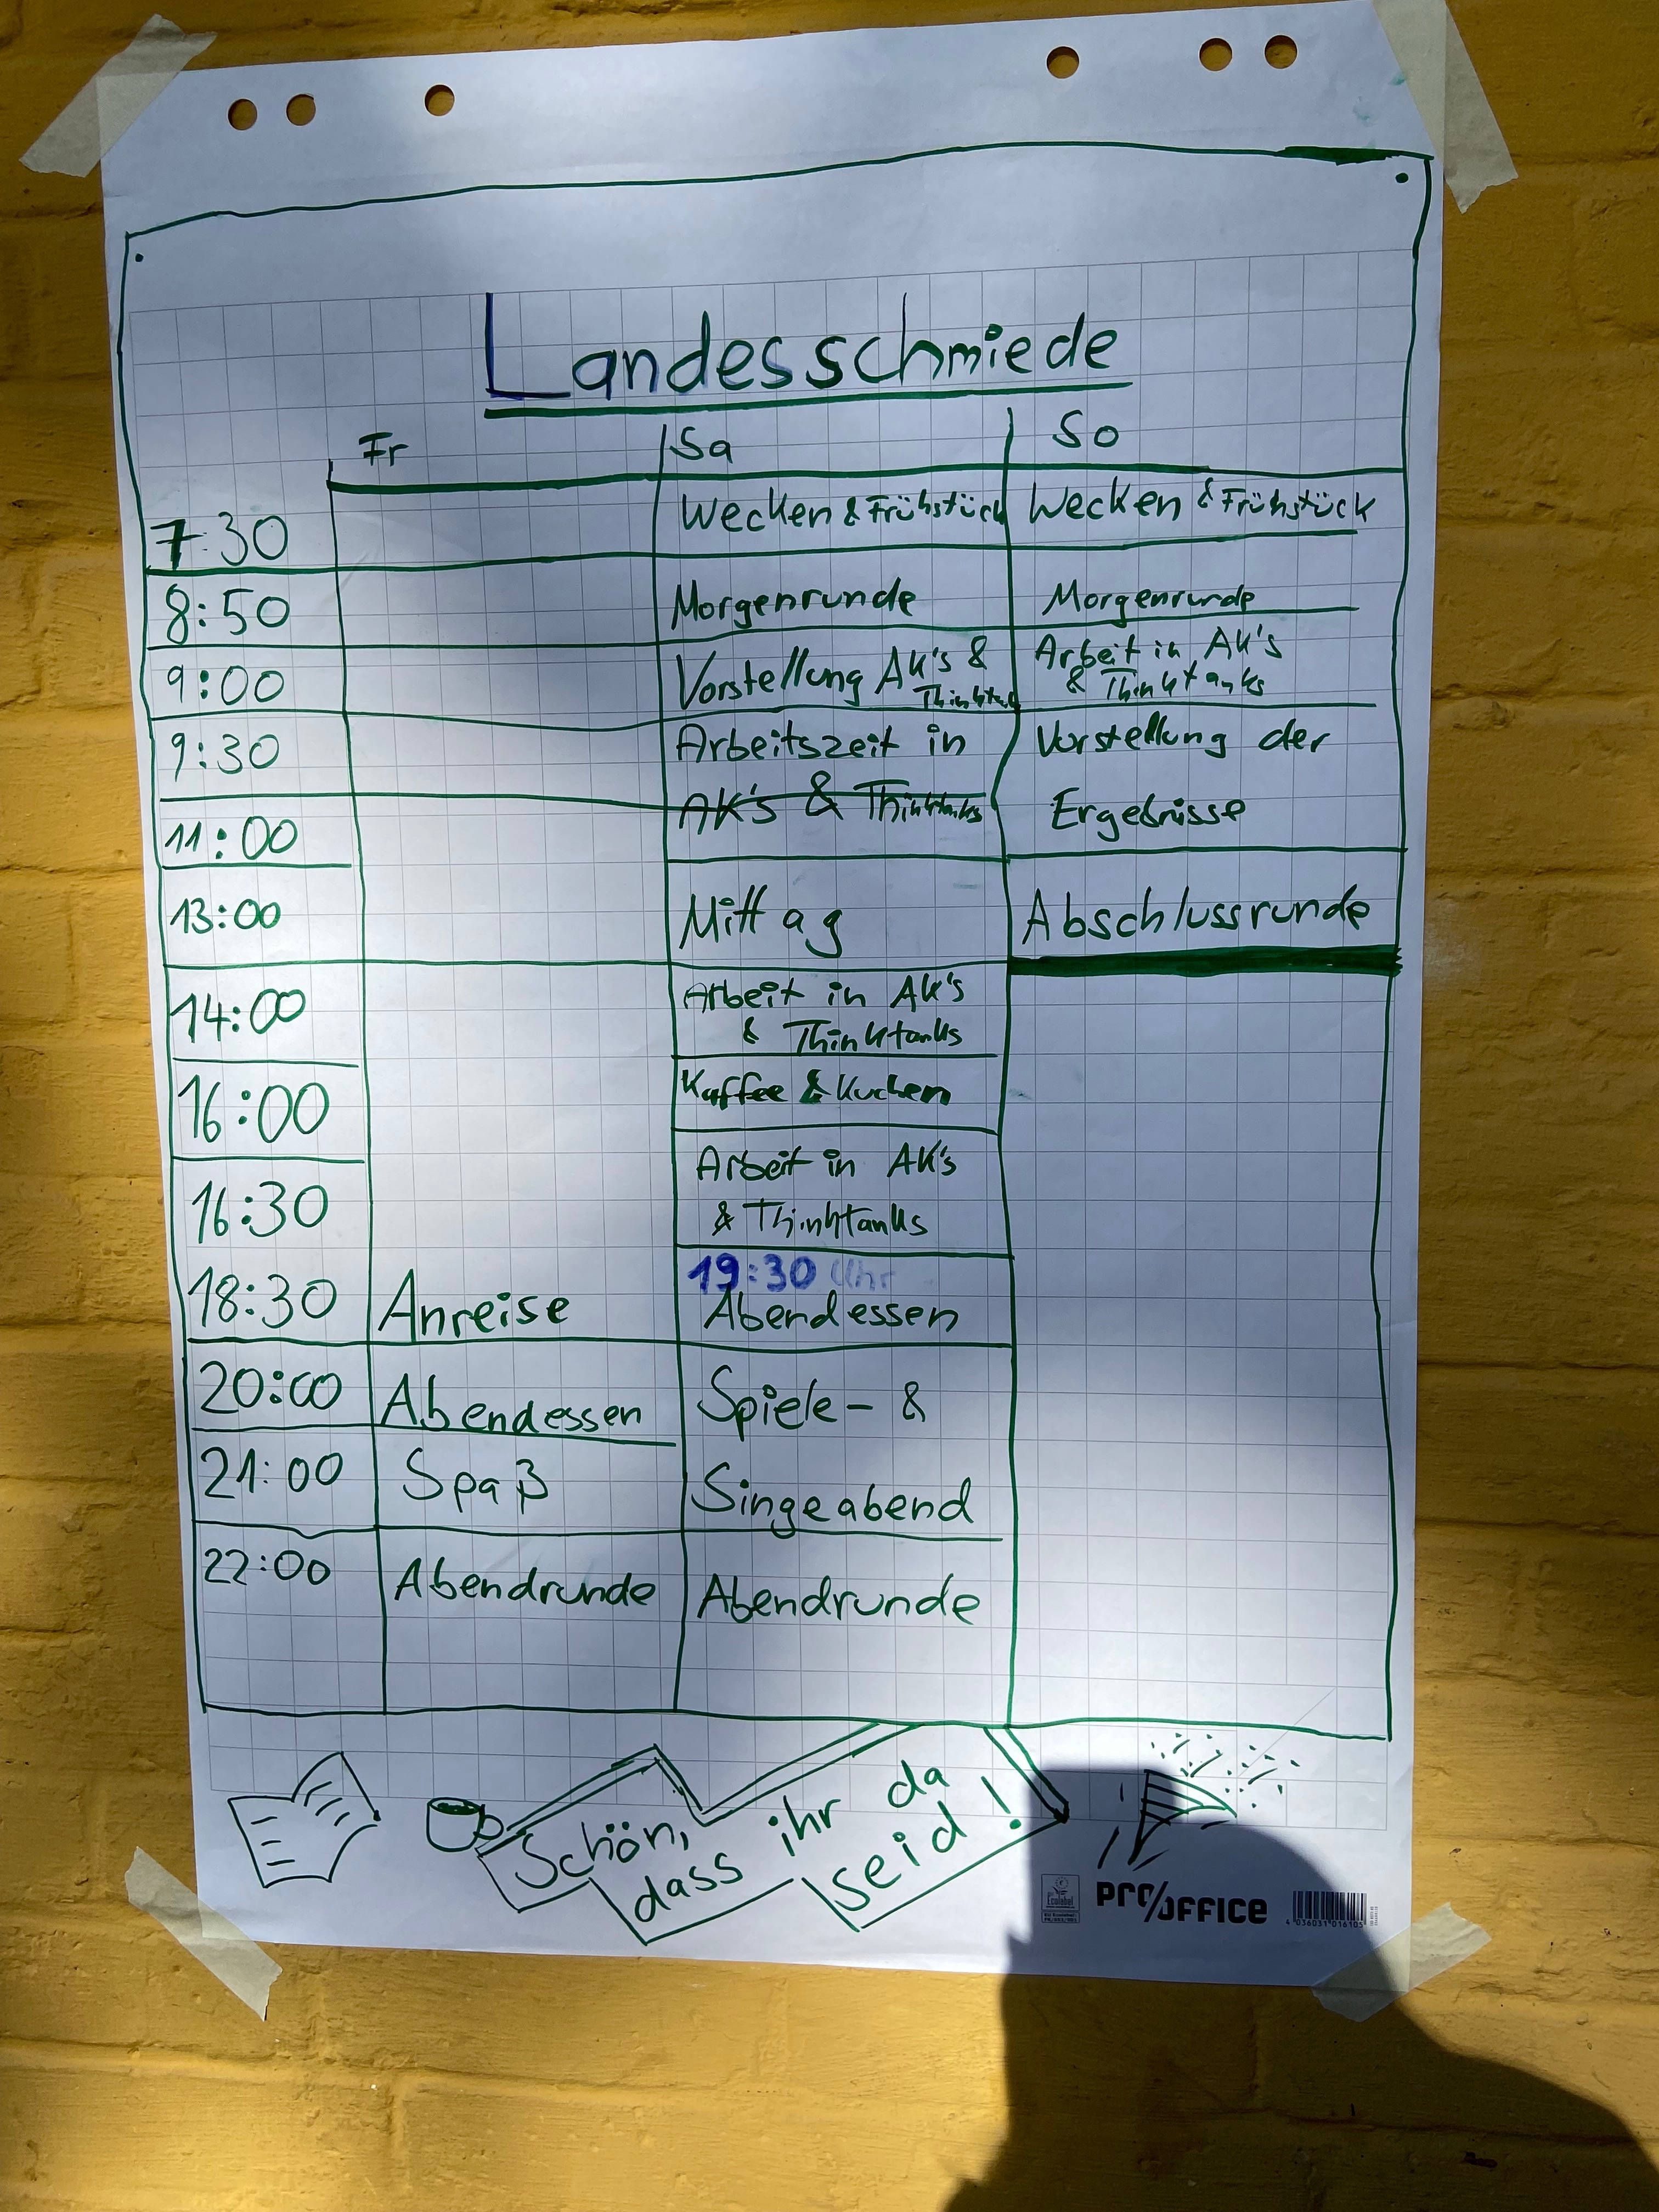 Landesschmiede
Fr Sa So
7:30 Wecken & Frühstück Wecken & Frühstück
8:50 Morgenrunde Morgenrunde
9:00 Vorstellung AK's & Arbeit in AK's
& Thinktanks
9:30 Arbeitszeit in Vorstellung der
11:00 AK's & Thinktanks Ergebnisse
13:00 Mittag Abschlussrunde
14:00 Arbeit in AK's
& Thinktanks
16:00 Kaffee & Kuchen
16:30 Arbeit in AK's
& Thinktanks
19:30 Uhr
18:30 Anreise Abendessen
20:00 Abendessen Spiele- &
21:00 Spaß Singeabend
22:00 Abendrunde Abendrunde
Schön,
dass ihr da
seid!
PRO/OFFICE
4 036031 016105